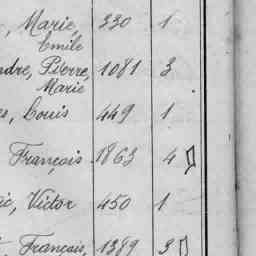 Marie, 330 1
Emile
Pierre, 1081 3
Marie
Louis 449 1
François 1863 4
Victor 450 1
François, 1389 3